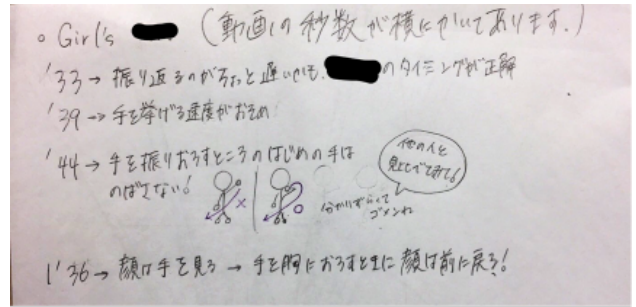 ○ Girl's (動画の秒数が横にかいてあります.)
'33 → 振り返るのがちょっと遅いかも. のタイミングが正解
'39 → 手を挙げる速度がおそめ
'44 → 手を振りおろすところのはじめの手は
のばさない!
×
○
他の人と
見比べてみて!
分かりずらくて
ゴメンね
1'36 → 顔は手を見る → 手を胸におろすときに顔は前に戻る!